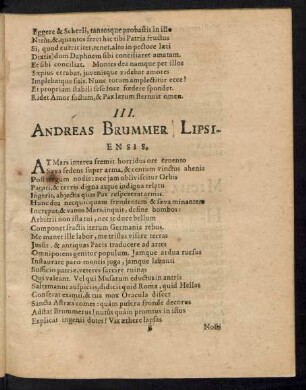 Eggere & Scherll, tantosque probastis in illo
Nisus, & quantos feret hic tibi Patria fructus
Si, quod cœpit iter, tenet. also in pectore læti
Dum Daphnem sibi conciliaret amatam.
Et sibi conciliat. Montes dea namque per illos
Implebatque suis. Nunc totum amplectitur ecce!
Et propriam stabili sese fore fœdere spondet.
Ridet Amor factum, & Pax lætum sternuit omen.
III.
ANDREAS BRUMMER LIPSI-
ENSIS.
AT Mars interea fremit horridus ore cruento
Sæva sedens super arma, & centum vinctus ahenis
Post tergum nodis: nec jam obliviscitur Orbis
Pagati, & terris digna atque indigna relatu
Ingerit, abjectis quas Pax respexerat armis.
Hunc dea nec quicquam frendentem & sæva minantem
Increpat, & vanos Mars, inquit, define bombos:
Arbitrii non ista tui, nec te dolore bellum
Componet fractis iterum Germania rebus.
Me manet ille labor, me tristes visere terras
Jussit, & antiquas Pacis traducere ad artes
Omnipotens genitor populum. Jamque ardua rursus
Instaurare paro montis juga, jamque labanti
Sufficio patriæ, veteres sarcire ruinas
Qui valeant. Vel qui Musarum eductus in antris
Saltzmanni auspiciis, didicit quid Roma, quid Hellas
Conferat eximii, & tua mox Oracula discet
Sancta Astræa comes: quàm pulcra fronde decorus
Adstat Brummerus! rursus quàm promtus in istos
Explicat ingenii dotes! Vix æthere lapsas
B
Nosti